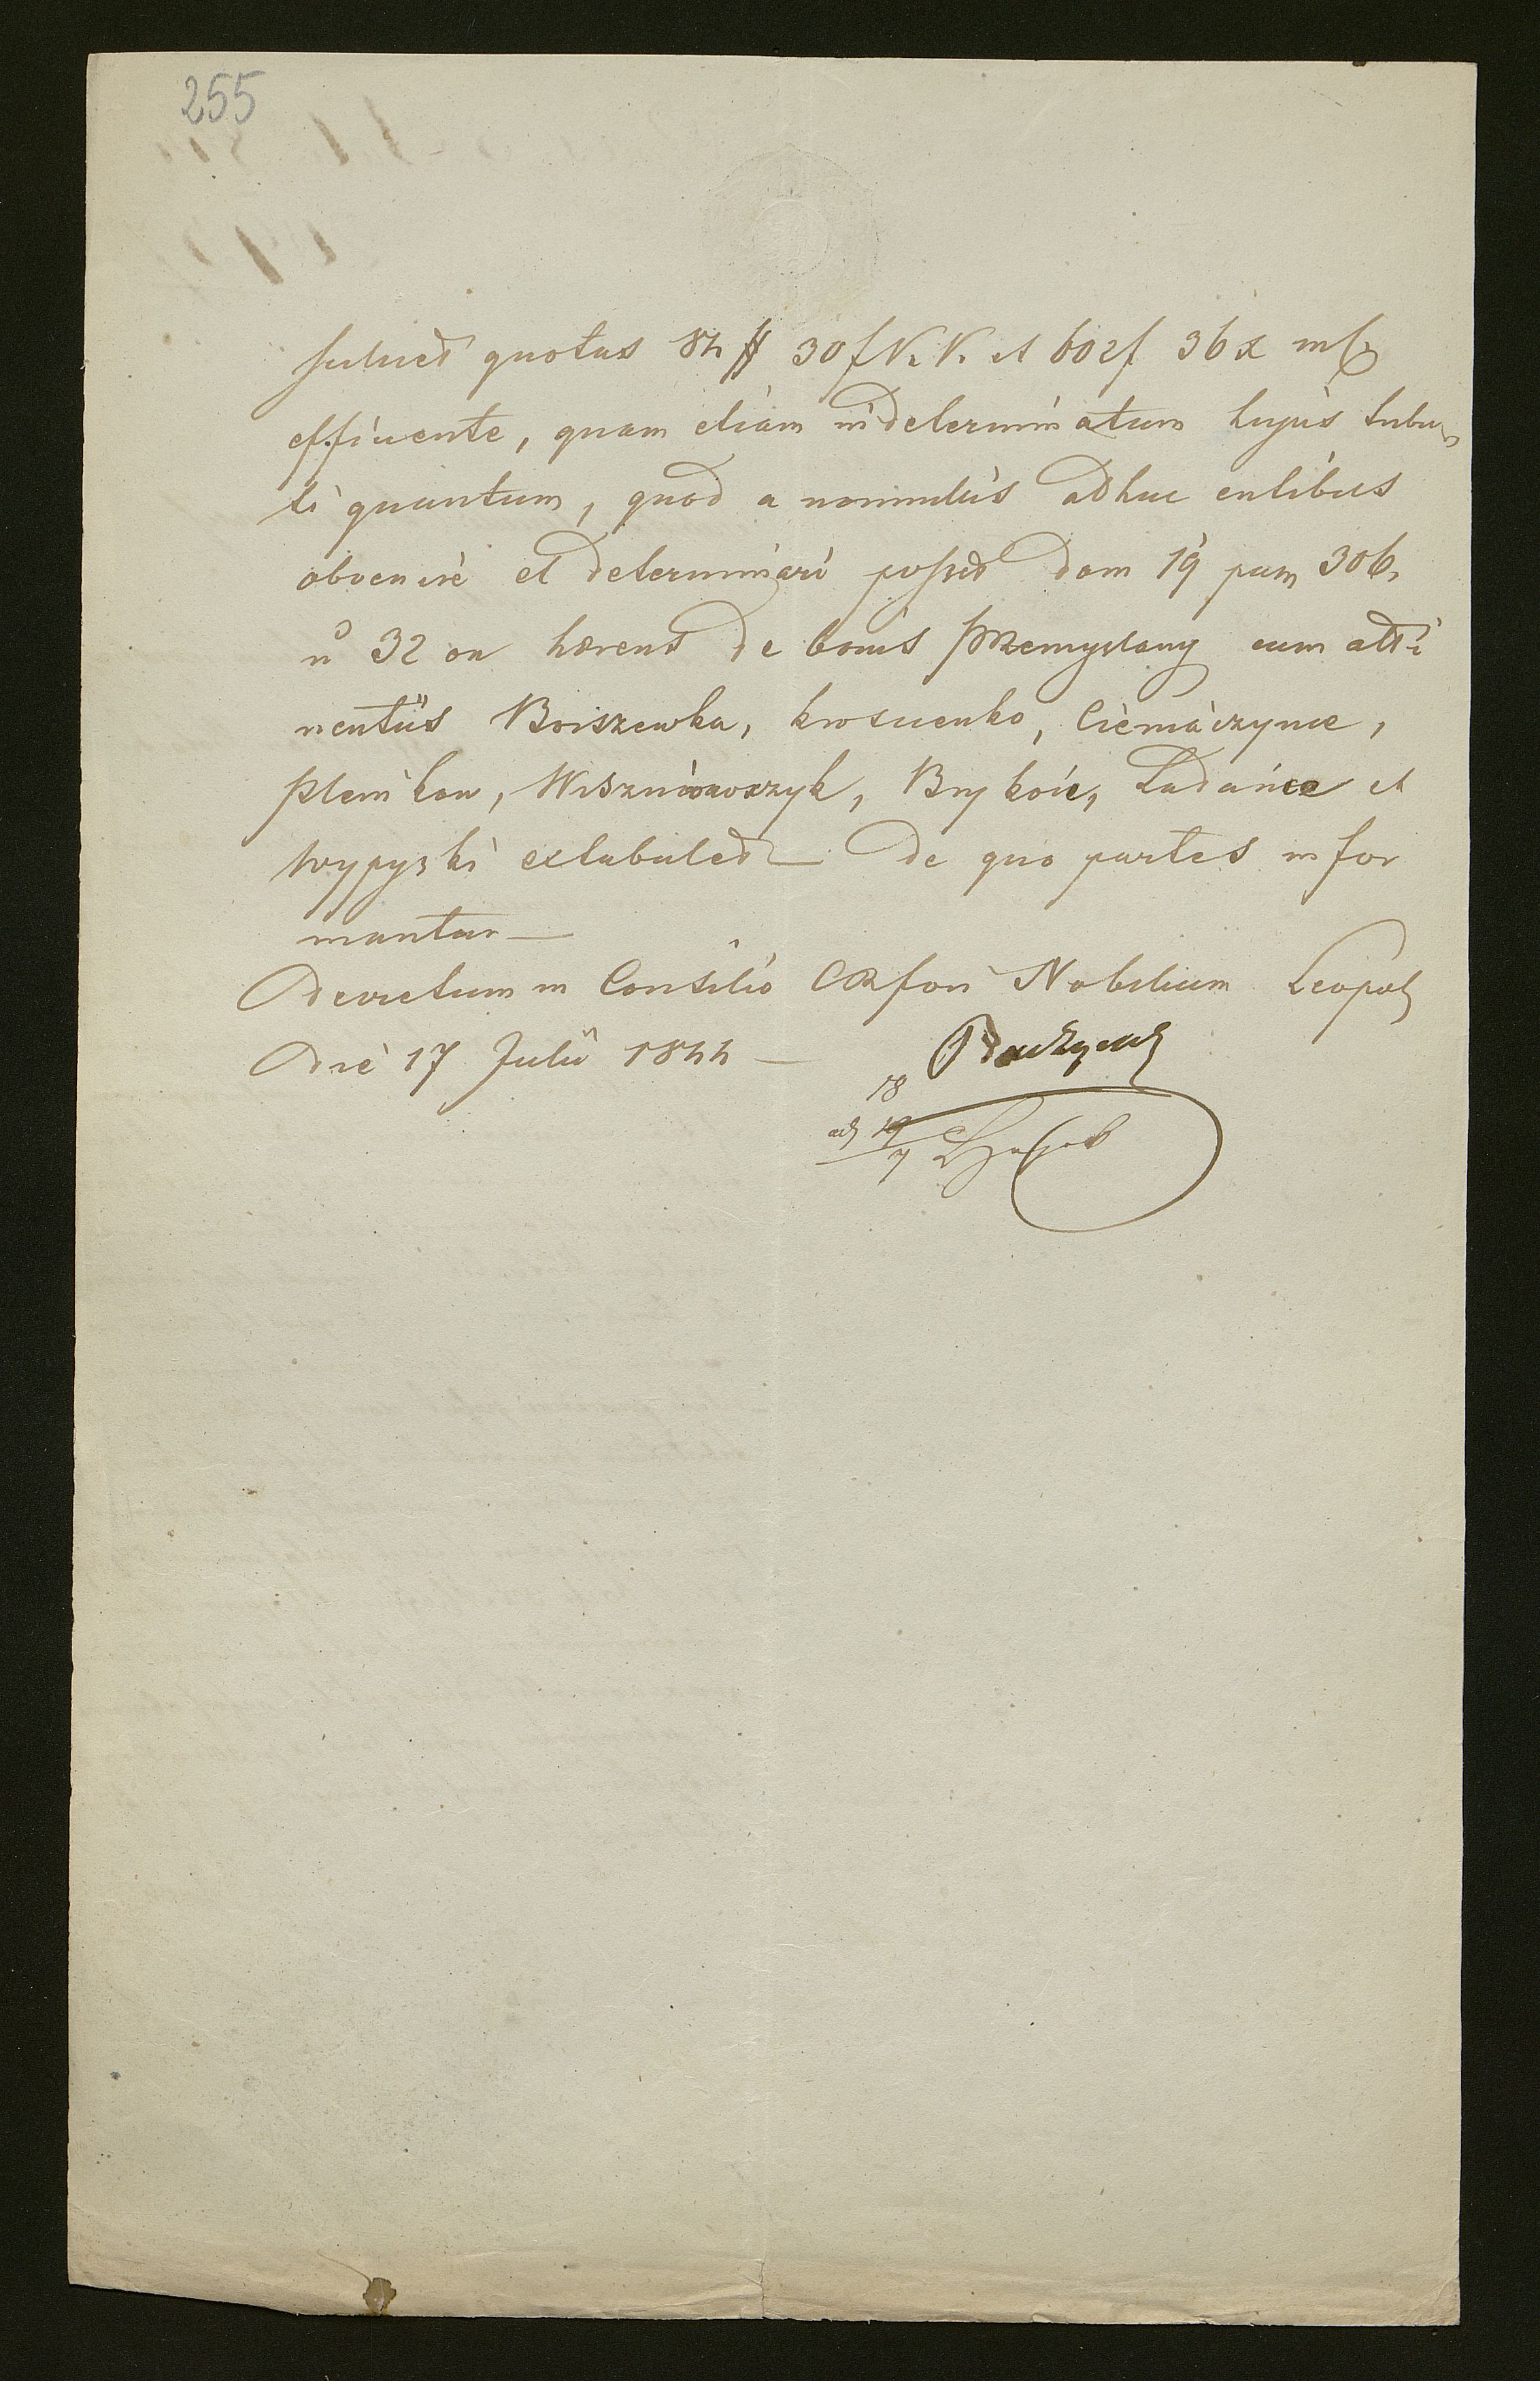 255
quotas 84 # 30 f V. V. et 602 f 36 x
efficiente, quam etiam indeterminatum hujus tribu
ti quantum, quod a nonnullis adhuc entibus
obvenire et determinari posset dom 19 pag 306.
n 32 on haerens de bonis Przemyslany cum atti
nentiis Boiszewka, Krosienko, Ciemaiczynie,
Plenikow, Wiszniowczyk, Brykoie, Ladaniee et
Wypyski extabuled — De quo partes infor
mantur —
Decretum in Consilio CR fori Nobilium Leopol
Die 17 Julii 1844 —
18
19
7